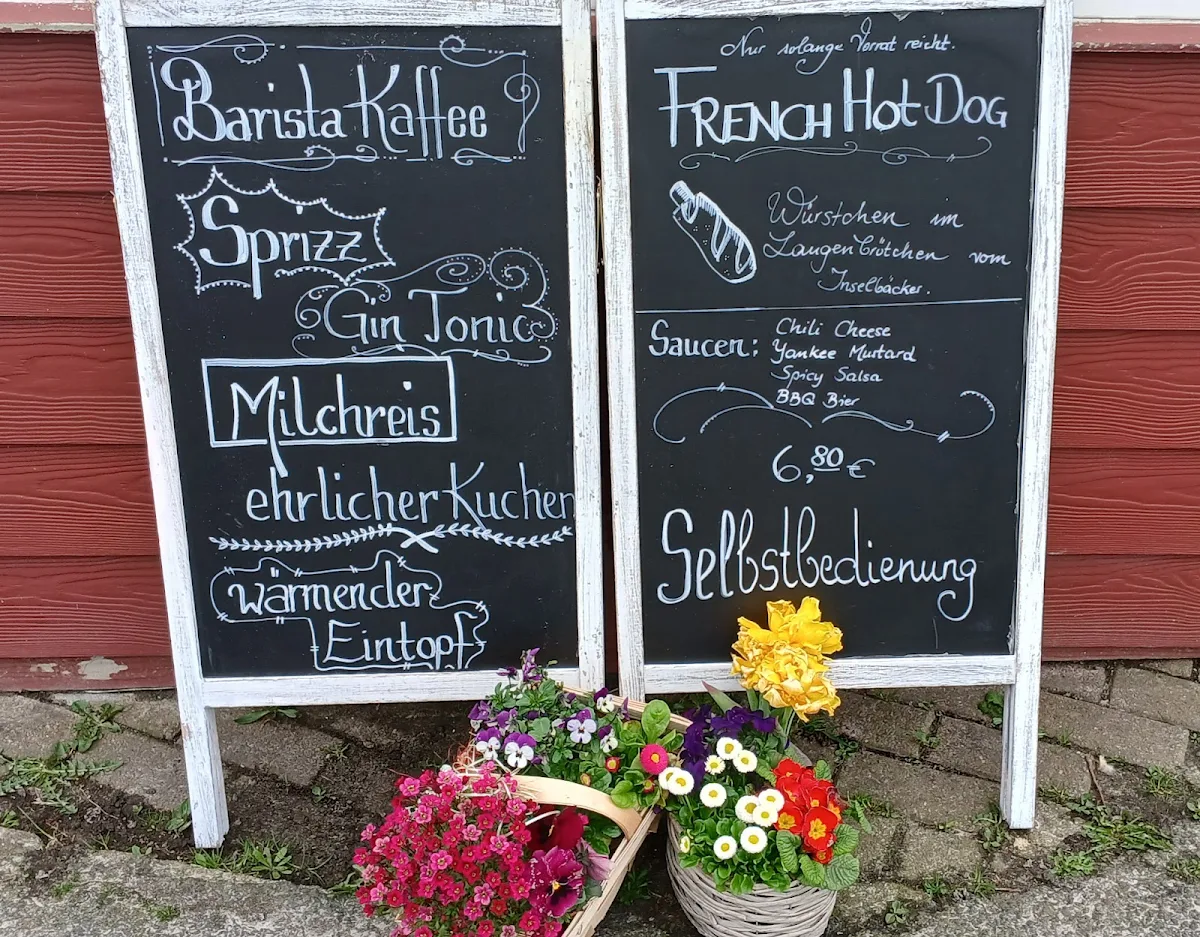 Barista Kaffee
Sprizz
Gin Tonic
Milchreis
ehrlicher Kuchen
wärmender
Eintopf
Nur solange Vorrat reicht.
FRENCH Hot DOG
Würstchen im
Laugenbrötchen vom
Inselbäcker.
Saucen: Chili Cheese
Yankee Mustard
Spicy Salsa
BBQ Bier
6,80 €
Selbstbedienung